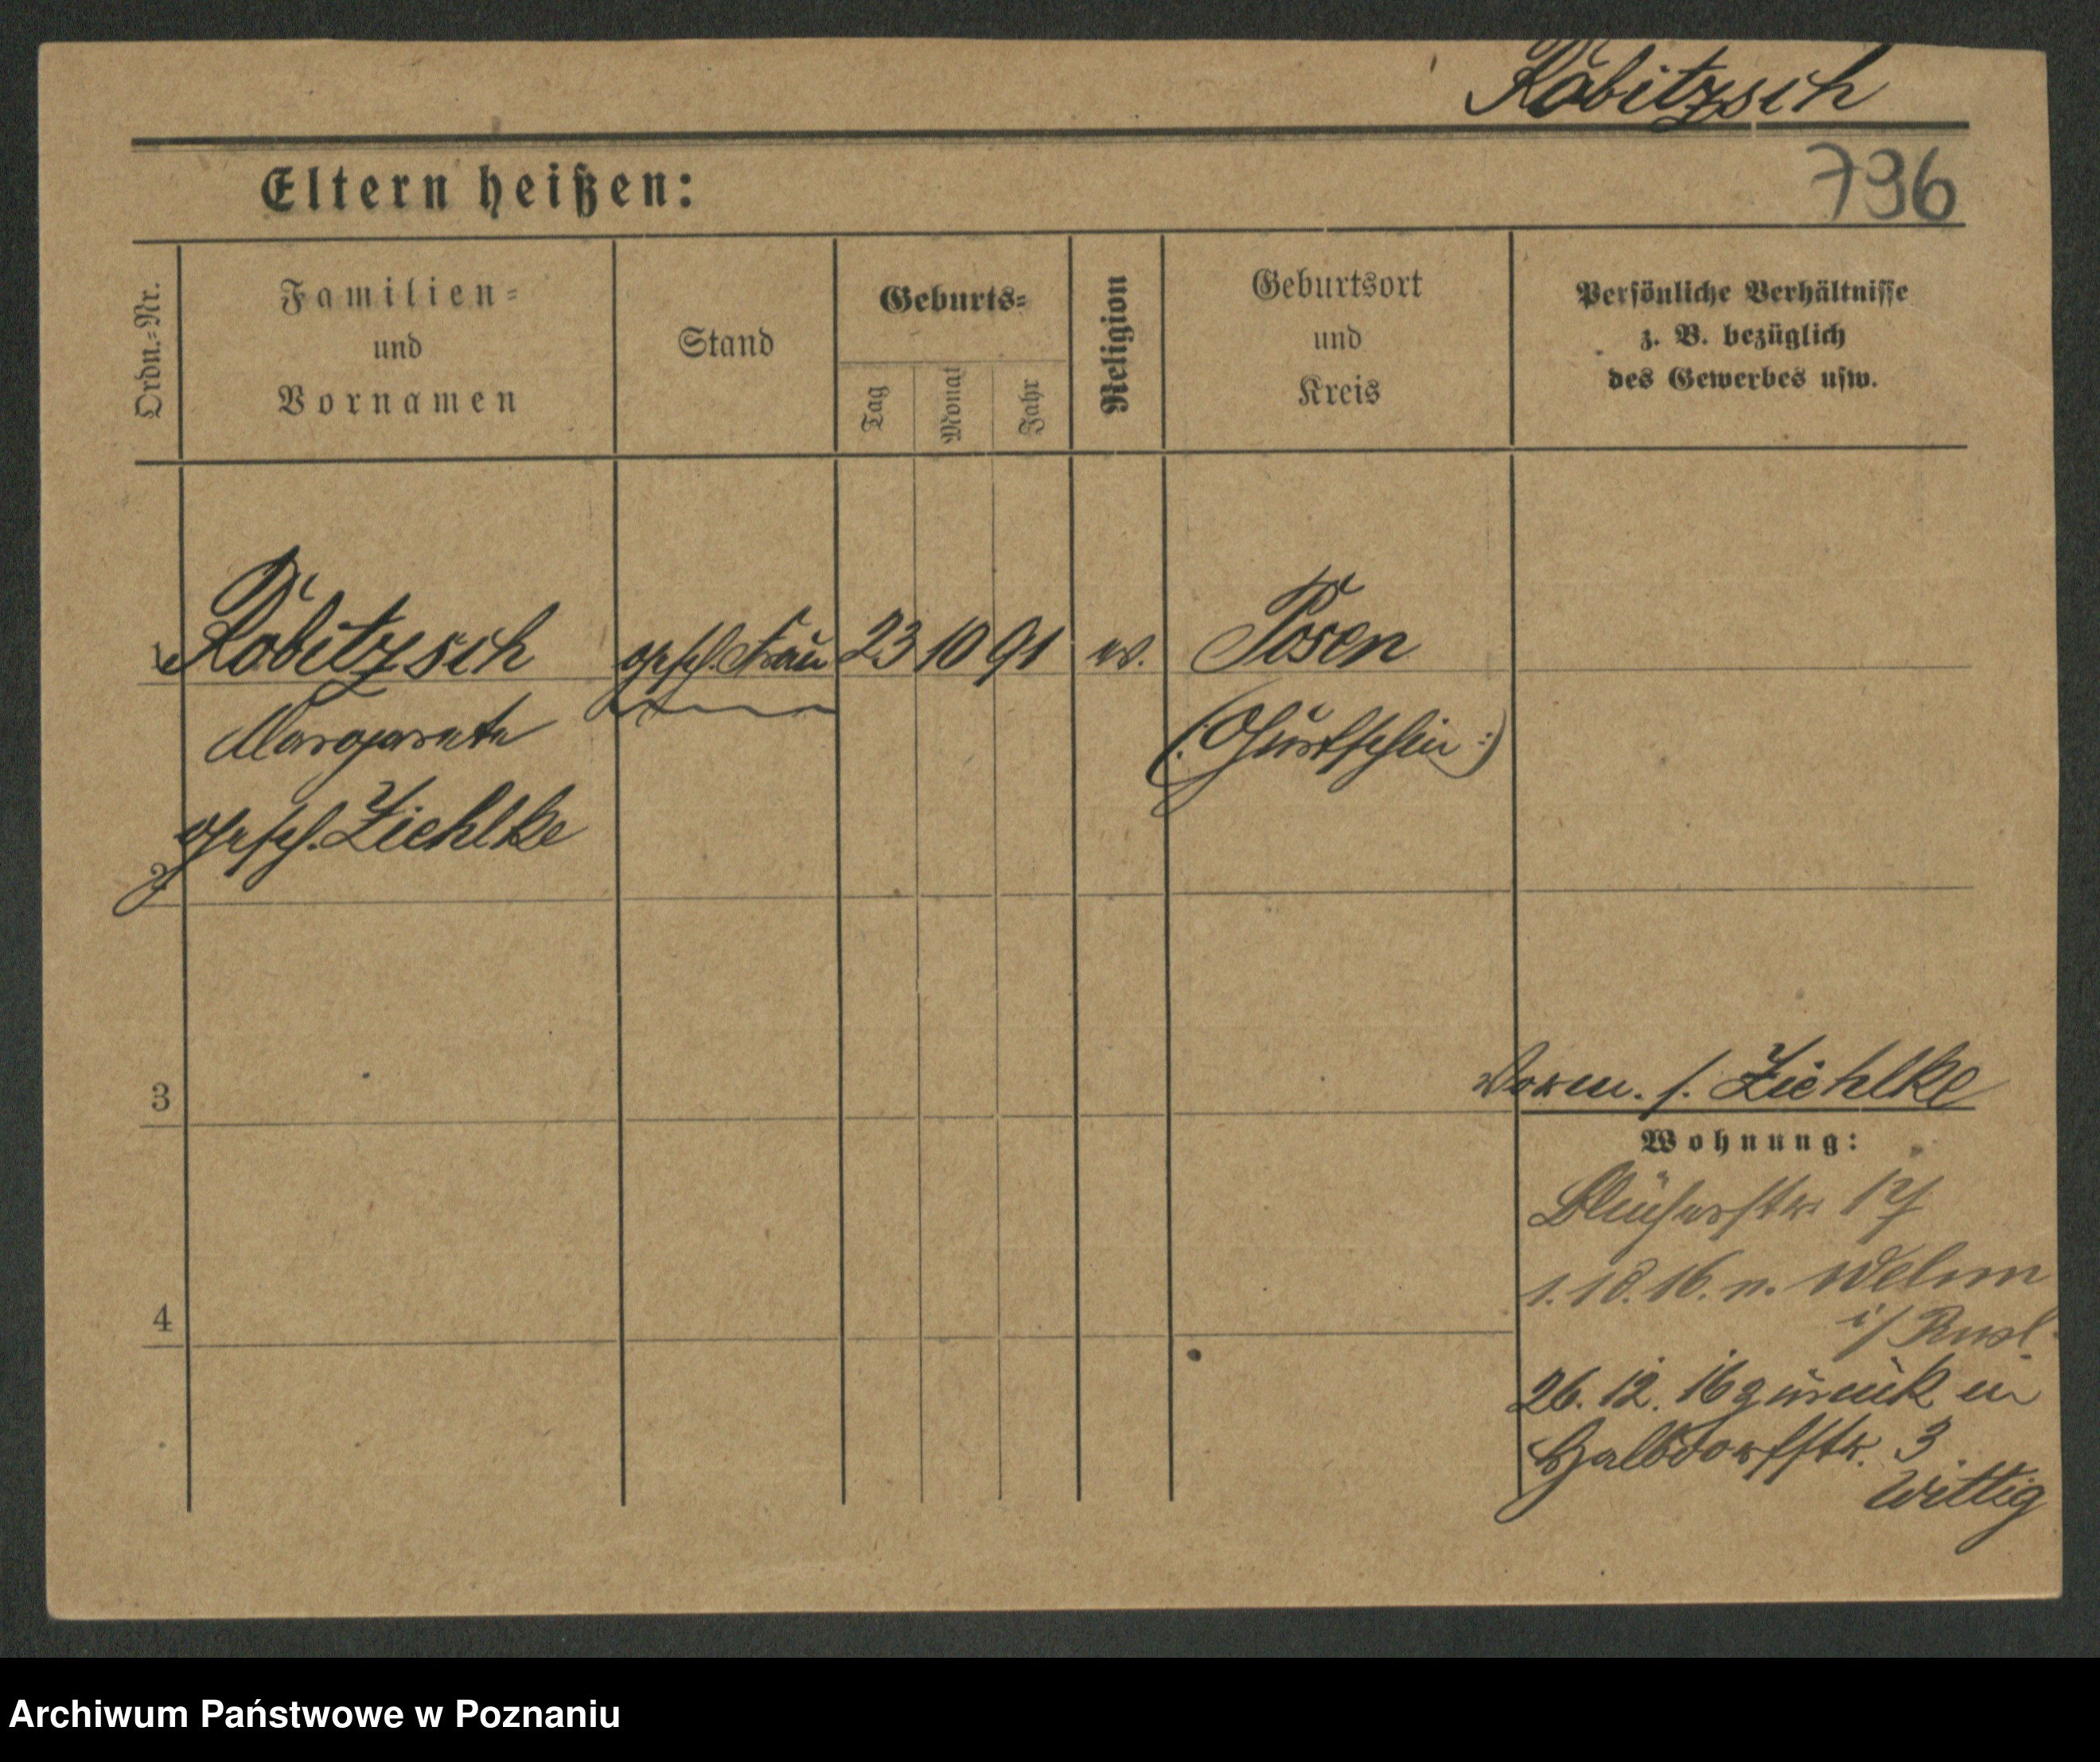 Robitzsch
736
Eltern heißen:
Ordn.-Nr.
Familien-
und
Vornamen
Stand
Geburts-
Tag
Monat
Jahr
Religion
Geburtsort
und
Kreis
Persönliche Verhältnisse
z. B. bezüglich
des Gewerbes usw.
1 Robitzsch gesch. Frau 23 10 91 ev. Posen
Margarete (: Gurtschin :)
gesch. Ziehlke
2
3
Vorm. s. Ziehlke
Wohnung:
Blücherstr. 17
1. 10. 16. n.
i/
4
26. 12. 16 zurück in
Halbdorfstr. 3
Wittig
Archiwum Państwowe w Poznaniu